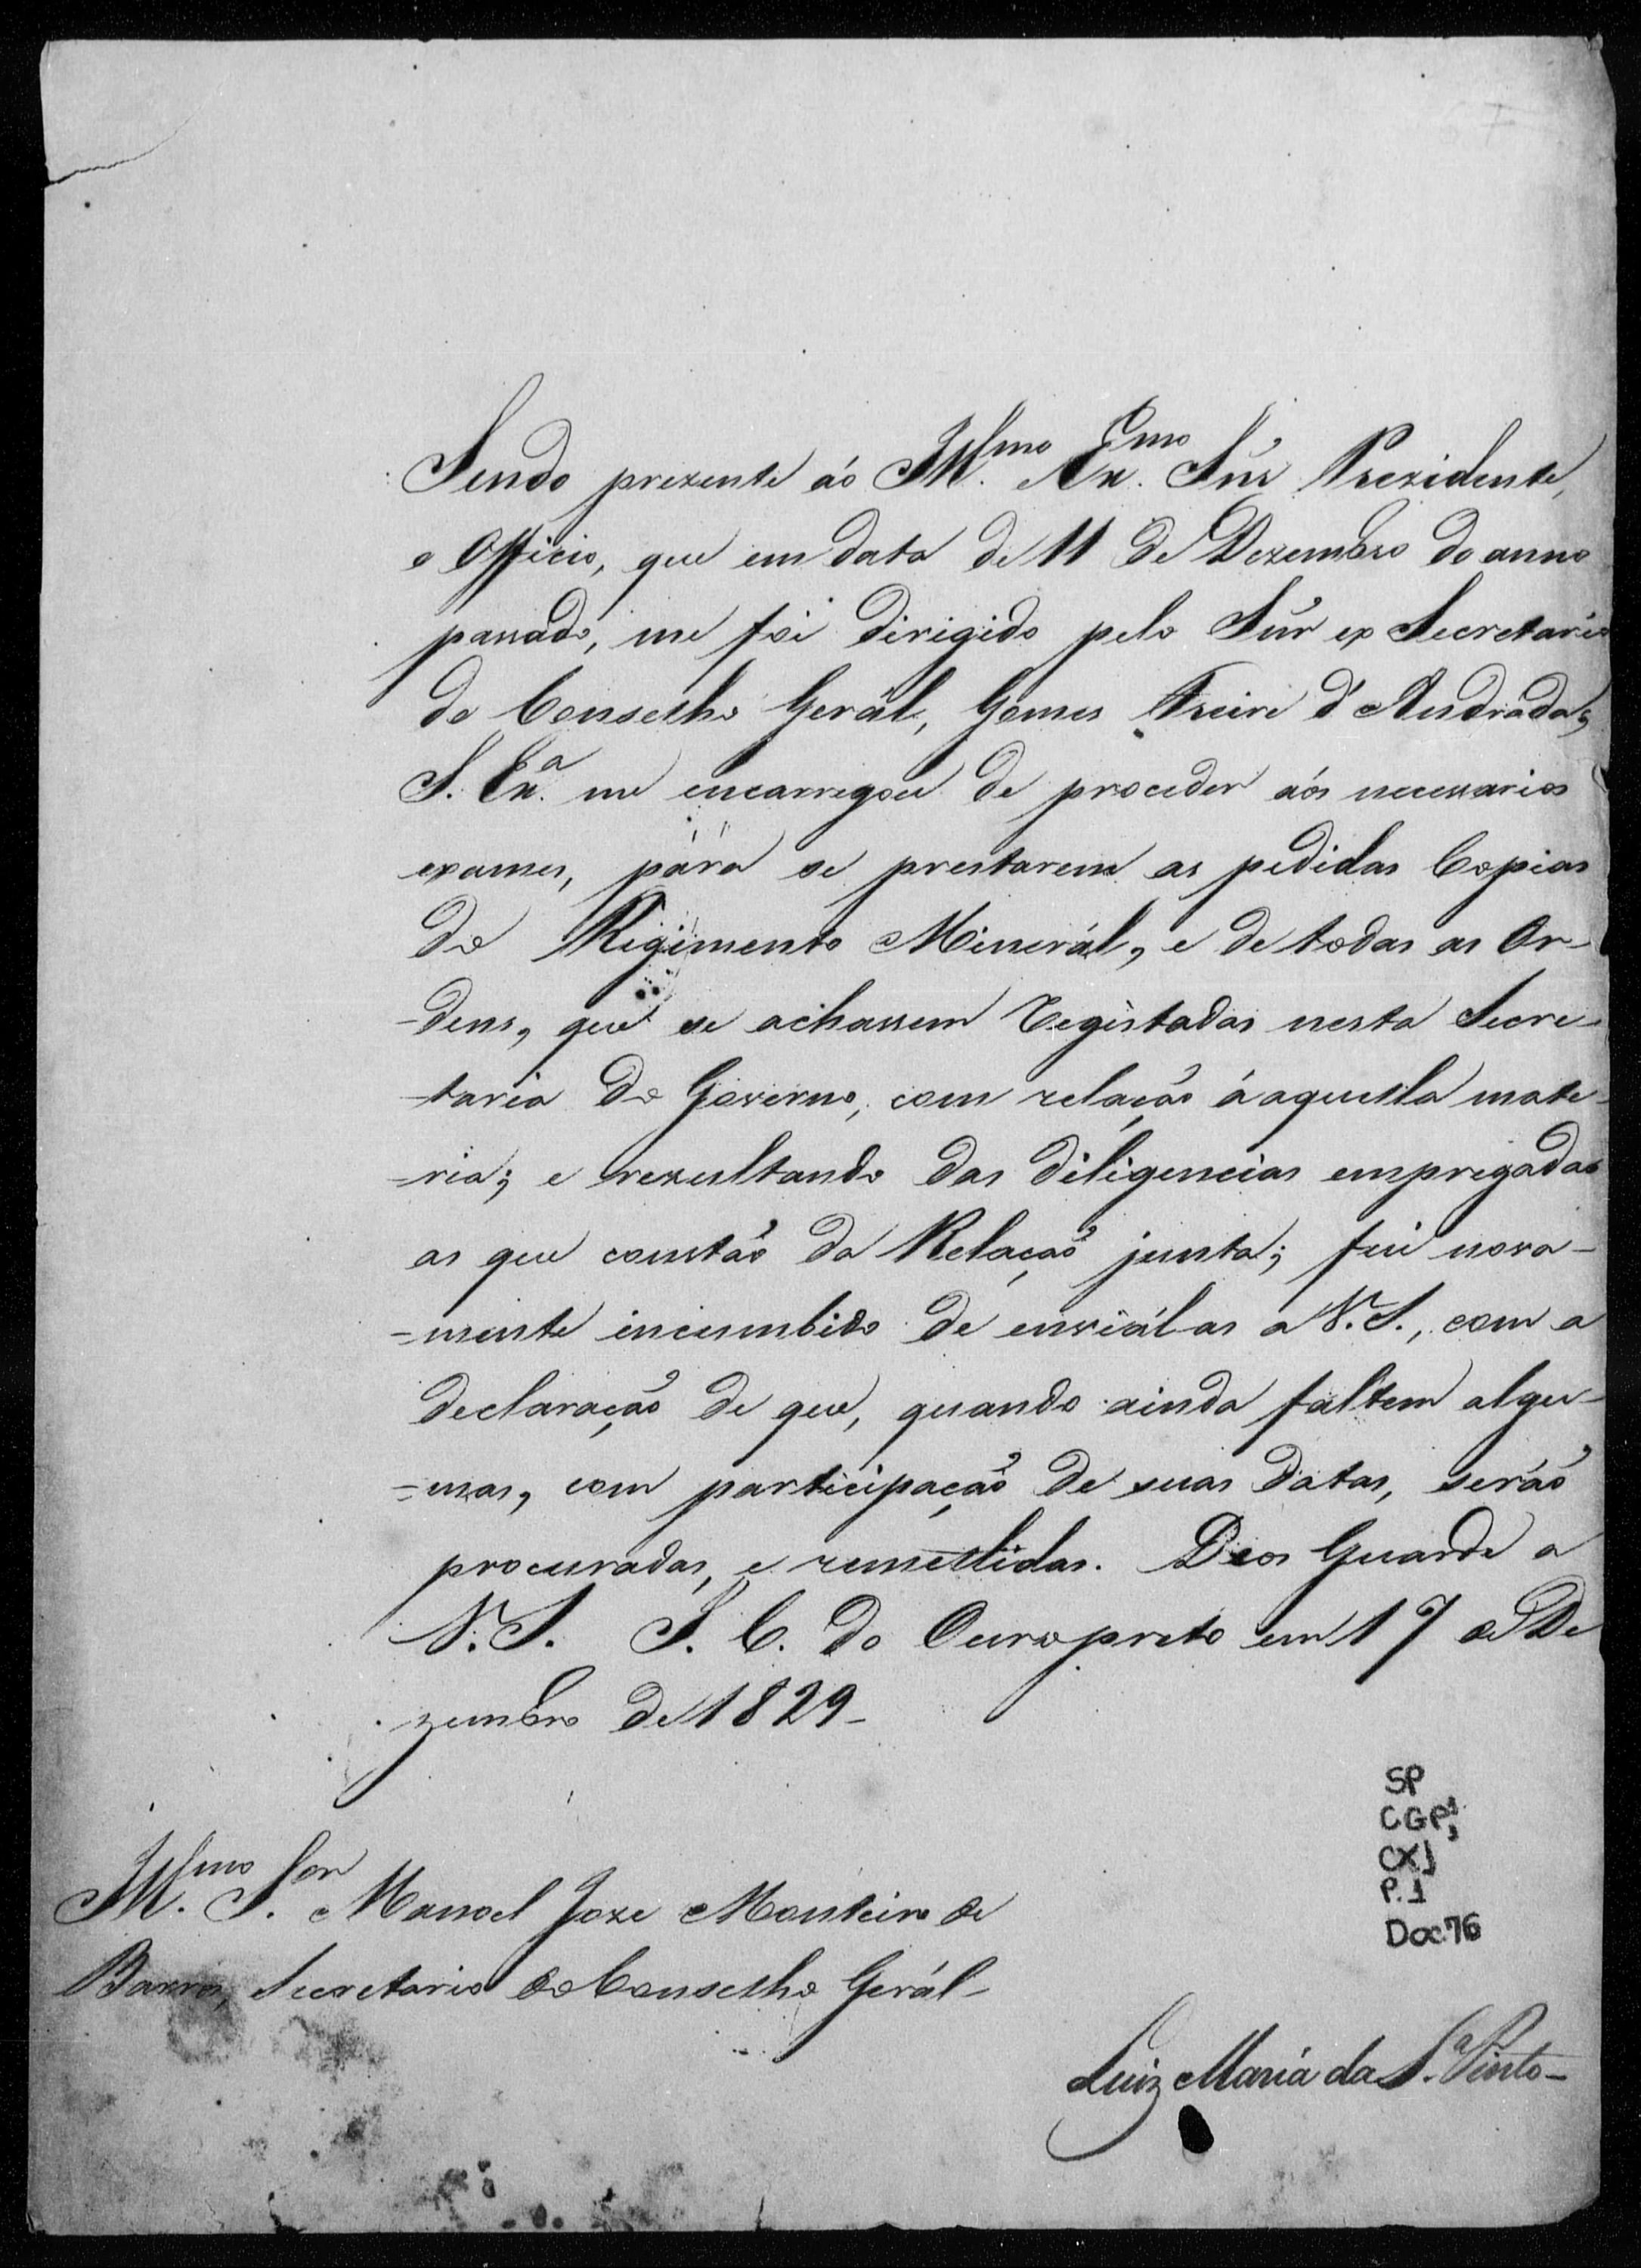 Sendo prezente áo Ill.mo Ex.mo Snr Prezidente,
o Officio, que em data de 11 de Dezembro do anno
passado, me foi dirigido pelo Snr ex Secretario
do Conselho Gerál, Gomes Freire d'Andrada,
S. Ex.a me encarregou de proceder aós necessarios
exames, pára se prestarem as pedidas Copias
do Regimento Minerál, e de todas as Or-
-dens, que se achassem Registadas nesta Secre-
-taria do Governo, com relação áaquella mate-
-ria; e rezultando das diligencias empregadas
as que constão da Relação junta; fui nova-
-mente incumbido de enviál-as a V. S., com a
declaração de que, quando ainda faltem algu-
=mas, com participação de suas datas, serão
procuradas, e remettidas. Deos Guarde a
V. S. I. C. do Ouropreto em 17 de De
zembro de 1829-
Ill.mo S.or Manoel Joze Monteiro de
Barros, Secretario do Conselho Gerál-
Luiz Maria da S.a Pinto-
SP
CGP1,
CX1
P.1
Doc.76